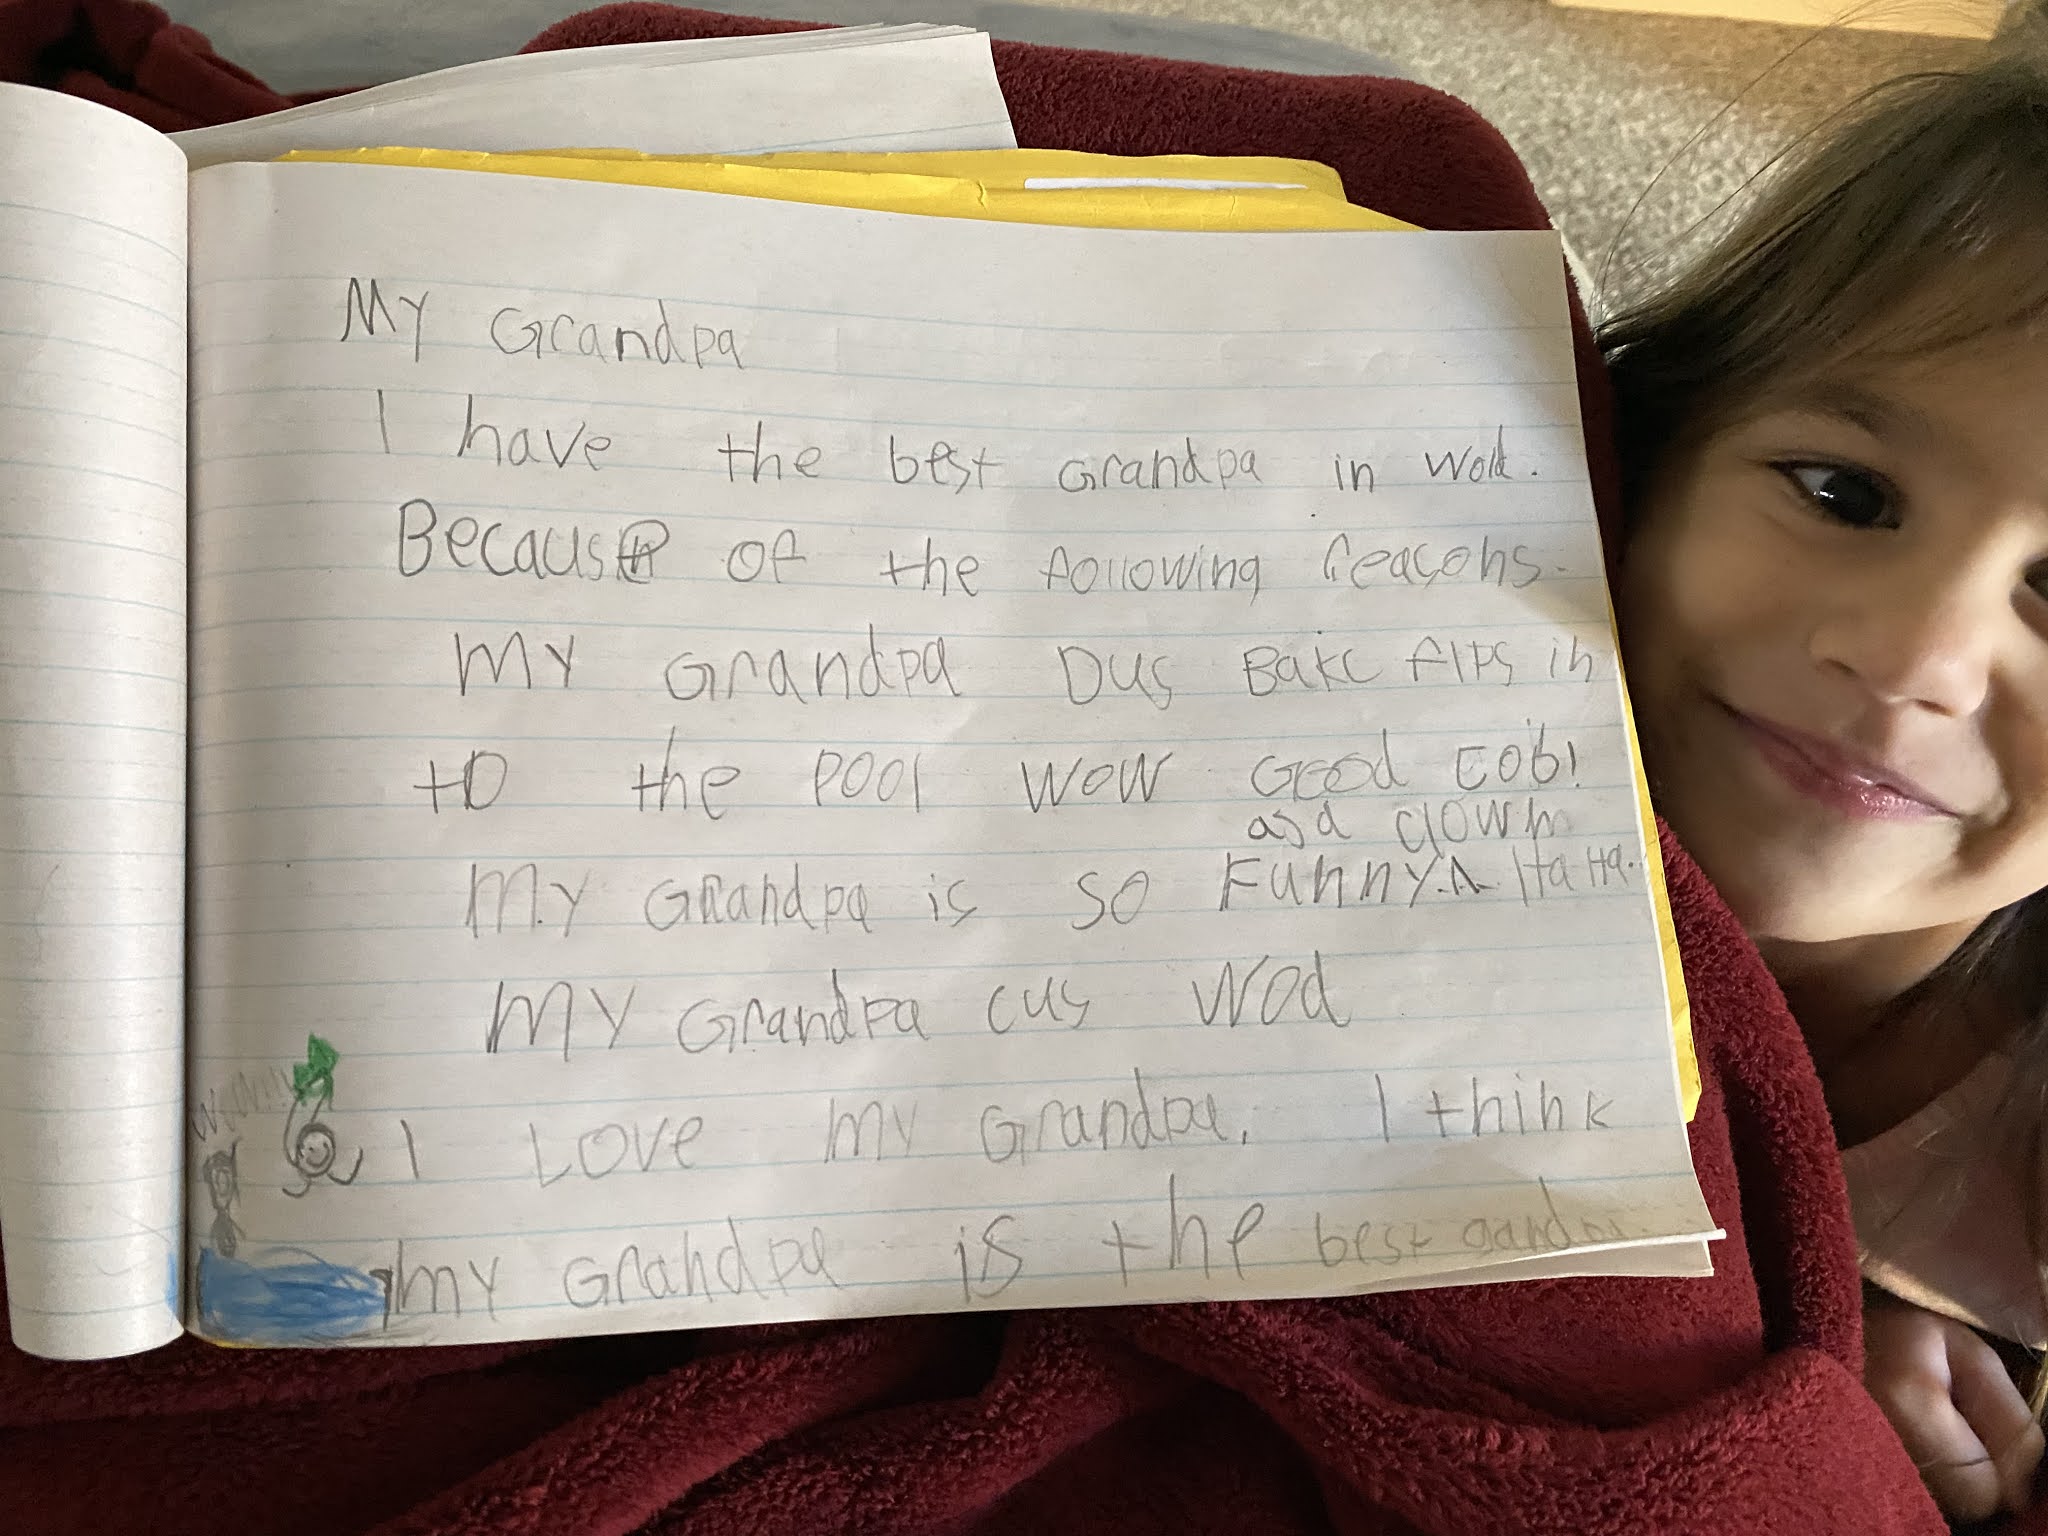 My Grandpa
I have the best Grandpa in Wold.
Because of the following reasons.
My Grandpa Dus Bakc flps in
to the Pool Wow Good Job!
as a clown
My Grandpa is so Funny. Ha Ha.
My Grandpa cus Wod
I Love my Grandpa. I think
my Grandpa is the best